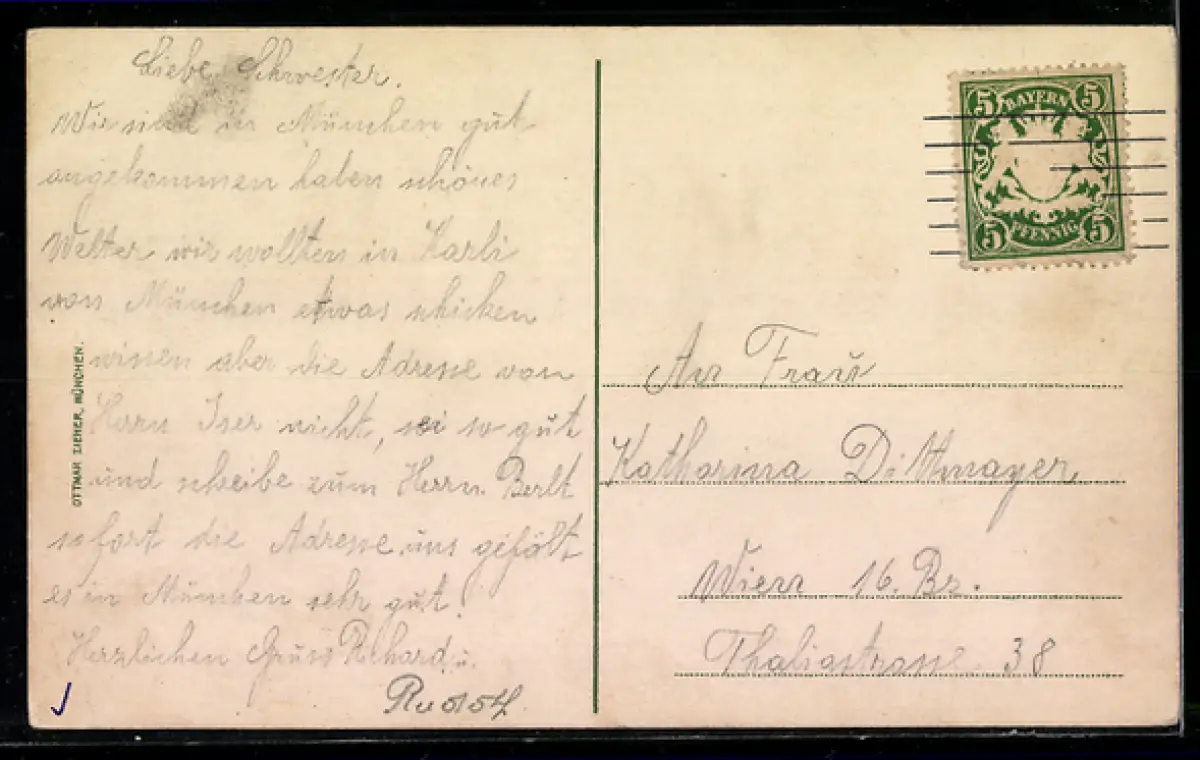 Liebe Schwester.
Wir sind in München gut
angekommen haben schönes
Wetter wir wollten in Karli
von München etwas schicken
wissen aber die Adresse von
Herrn Iser nicht, sei so gut
und scheibe zum Herrn Berlt
sofort die Adresse, uns gefält
es in München sehr gut.
Herzlichen Gruss Richard u.
Rudolf
OTTMAR ZIEHER, MÜNCHEN.
5 BAYERN 5
5 PFENNIG 5
An Frau
Katharina Dittmayer
Wien 16. Bz.
Thaliastrasse 38